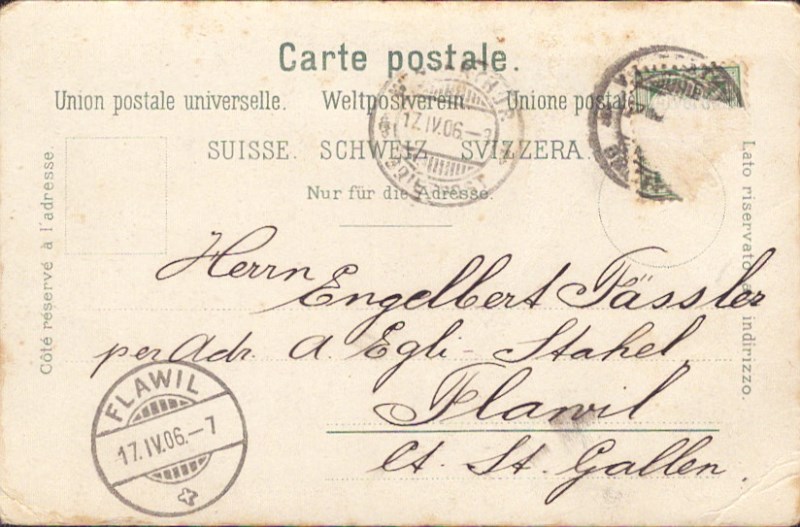 Carte postale.
Union postale universelle. Weltpostverein. Unione postale
SUISSE. SCHWEIZ. SVIZZERA.
Nur für die Adresse.
Côté réservé à l'adresse.
Lato riservato indirizzo.
17.IV.06.-
BRIEF
Herrn
Engelbert Fässler
per Adr. A. Egli-Stahel
Flawil
Ct. St. Gallen.
FLAWIL
17.IV.06.-7